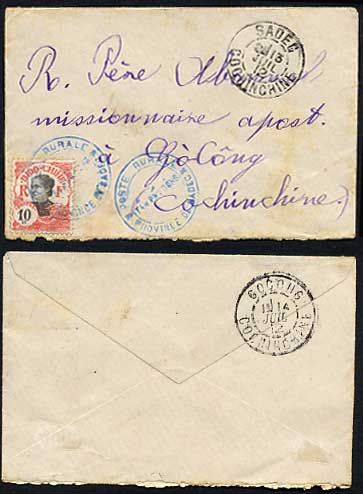 SADEC
13
JUIL
12
COCHINCHINE
R. Père
missionnaire apost.
à Gòcông
Cochinchine)
POSTE RURALE
PROVINCE DE SADEC
POSTE RURALE
PROVINCE DE SADEC
INDO-CHINE
R F
10
GOCONG
14
JUIL
12
COCHINCHINE